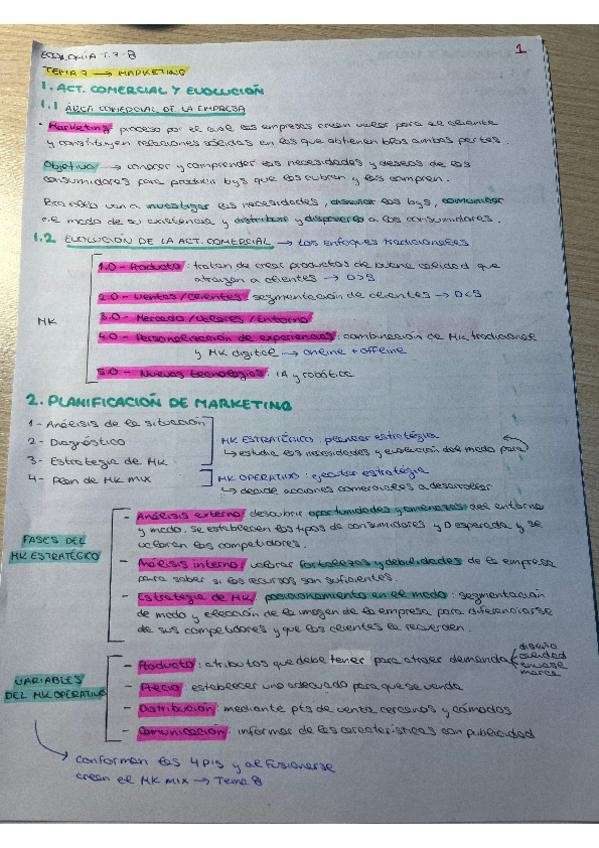 ECONOMÍA T.7-8
1
TEMA 7 → MARKETING
1. ACT. COMERCIAL Y EVOLUCIÓN
1.1 ÁREA COMERCIAL DE LA EMPRESA
· Marketing: proceso por el cual las empresas crean valor para el cliente
y constituyen relaciones sólidas en las que obtienen bfos ambas partes.
Objetivo → conocer y comprender las necesidades y deseos de los
consumidores para producir bys que las cubran y las compren.
Para ello van a investigar las necesidades, desarrollar los bys, comunicar
al mdo de su existencia y distribuir y disponerlo a los consumidores.
1.2 EVOLUCIÓN DE LA ACT. COMERCIAL → Los enfoques tradicionales
MK
1.0 - Producto: tratan de crear productos de buena calidad que
atraigan a clientes → O>D
2.0 - Ventas/clientes: segmentación de clientes → D<S
3.0 - Mercado/valores/Entorno
4.0 - Personalización de experiencias: combinación de MK tradicional
y MK digital → online + offline
5.0 - Nuevas tecnologías: IA y robótica
2. PLANIFICACIÓN DE MARKETING
1 - Análisis de la situación
2 - Diagnóstico
3 - Estrategia de MK
4 - Plan de MK MIX
MK ESTRATÉGICO: planear estratégia
↳ estudia las necesidades y evolución del mdo para
MK OPERATIVO: ejecutar estratégia
↳ decide acciones comerciales a desarrollar
FASES DEL
MK ESTRATÉGICO
- Análisis externo: descubrir oportunidades y amenazas del entorno
y mdo. Se establecen los tipos de consumidores y D esperada y se
valoran los competidores.
- Análisis interno: valorar fortalezas y debilidades de la empresa
para saber si los recursos son suficientes.
- Estrategia de MK, posicionamiento en el mdo: segmentación
de mdo y elección de la imagen de la empresa para diferenciarse
de sus competidores y que los clientes la recuerden.
VARIABLES
DEL MK OPERATIVO
- Producto: atributos que debe tener para atraer demanda
diseño
calidad
envase
marca
- Precio: establecer uno adecuado para que se venda
- Distribución: mediante pts de venta cercanos y cómodos
- Comunicación: informar de las características con publicidad
→ conforman las 4 P's y al fusionarse
crean el MK MIX → Tema 8